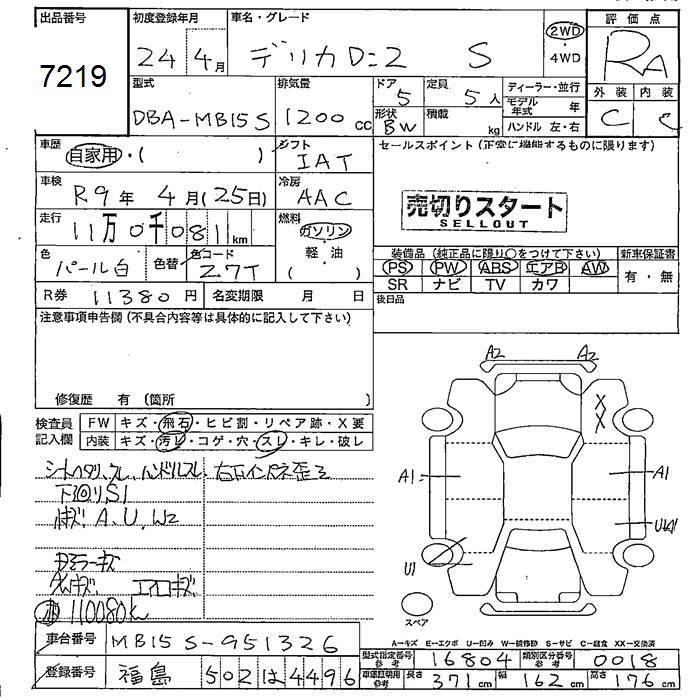 出品番号 初度登録年月 車名・グレード 評価点
7219 24 4月 デリカD:2 S 2WD・4WD RA
型式 排気量 ドア 5 定員 5人 ディーラー・並行 外装 内装
DBA-MB15S 1200cc 形状 BW 積載 kg モデル年式 年 C C
ハンドル 左・右
車歴 自家用・( ) シフト IAT セールスポイント(正常に機能するものに限ります)
車検 R9年 4月(25日) 冷房 AAC 売切りスタート
SELLOUT
走行 11万0千081km 燃料 ガソリン・軽油( )
色 パール白 色替 色コード Z7T 装備品(純正品に限り○をつけて下さい) 新車保証書
PS PW ABS エアB AW 有・無
SR ナビ TV カワ
R券 11380円 名変期限 月 日 後日品
注意事項申告欄(不具合内容等は具体的に記入して下さい)
修復歴 有(箇所 )
検査員記入欄 FW キズ・飛石・ヒビ割・リペア跡・X要
内装 キズ・汚レ・コゲ・穴・スレ・キレ・破レ
シートヘタリ、スレ、ハンドルスレ、右下インパネ歪ミ
下廻りS1
キズ A、U、W2
ドアミラーキズ
キズ エアロキズ
110080k
A2 A2
X
X
A1 A1
U1
スペア
A-キズ E-エクボ U-凹み W-補修跡 S-サビ C-腐食 XX-交換済
車台番号 MB15S-951326 型式指定番号 参考 16804 類別区分番号 参考 0018
登録番号 福島 502 は 4496 車庫証明用 参考 長さ 371cm 幅 162cm 高さ 176cm